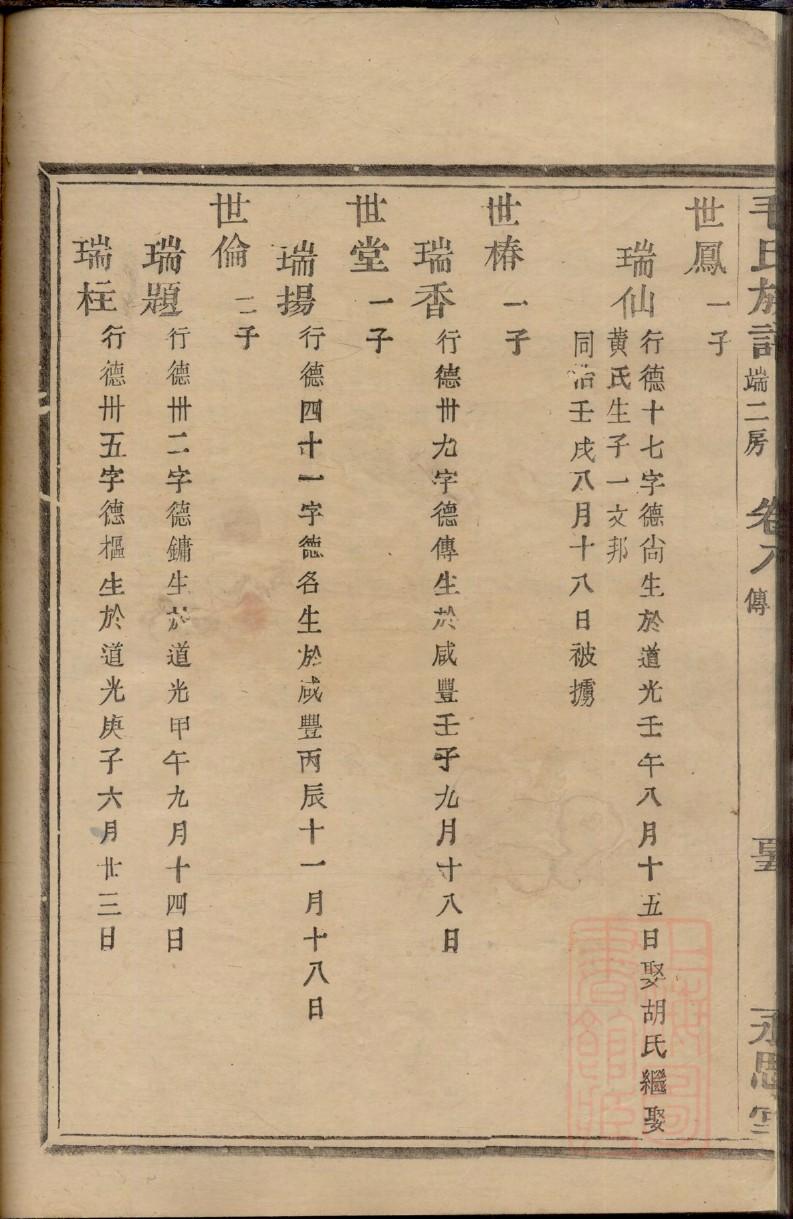 毛氏族譜 端二房 卷八 傳 永思堂
世鳳 一子
瑞仙 行德十七字德尙生於道光壬午八月十五日娶胡氏繼娶
黄氏生子一文邦
同治壬戌八月十八日被擄
世椿 一子
瑞香 行德卅九字德傳生於咸豐壬子九月十八日
世堂 一子
瑞揚 行德四十一字德名生於咸豐丙辰十一月十八日
世倫 二子
瑞題 行德卅二字德鏞生於道光甲午九月十四日
瑞柱 行德卅五字德樞生於道光庚子六月廿三日